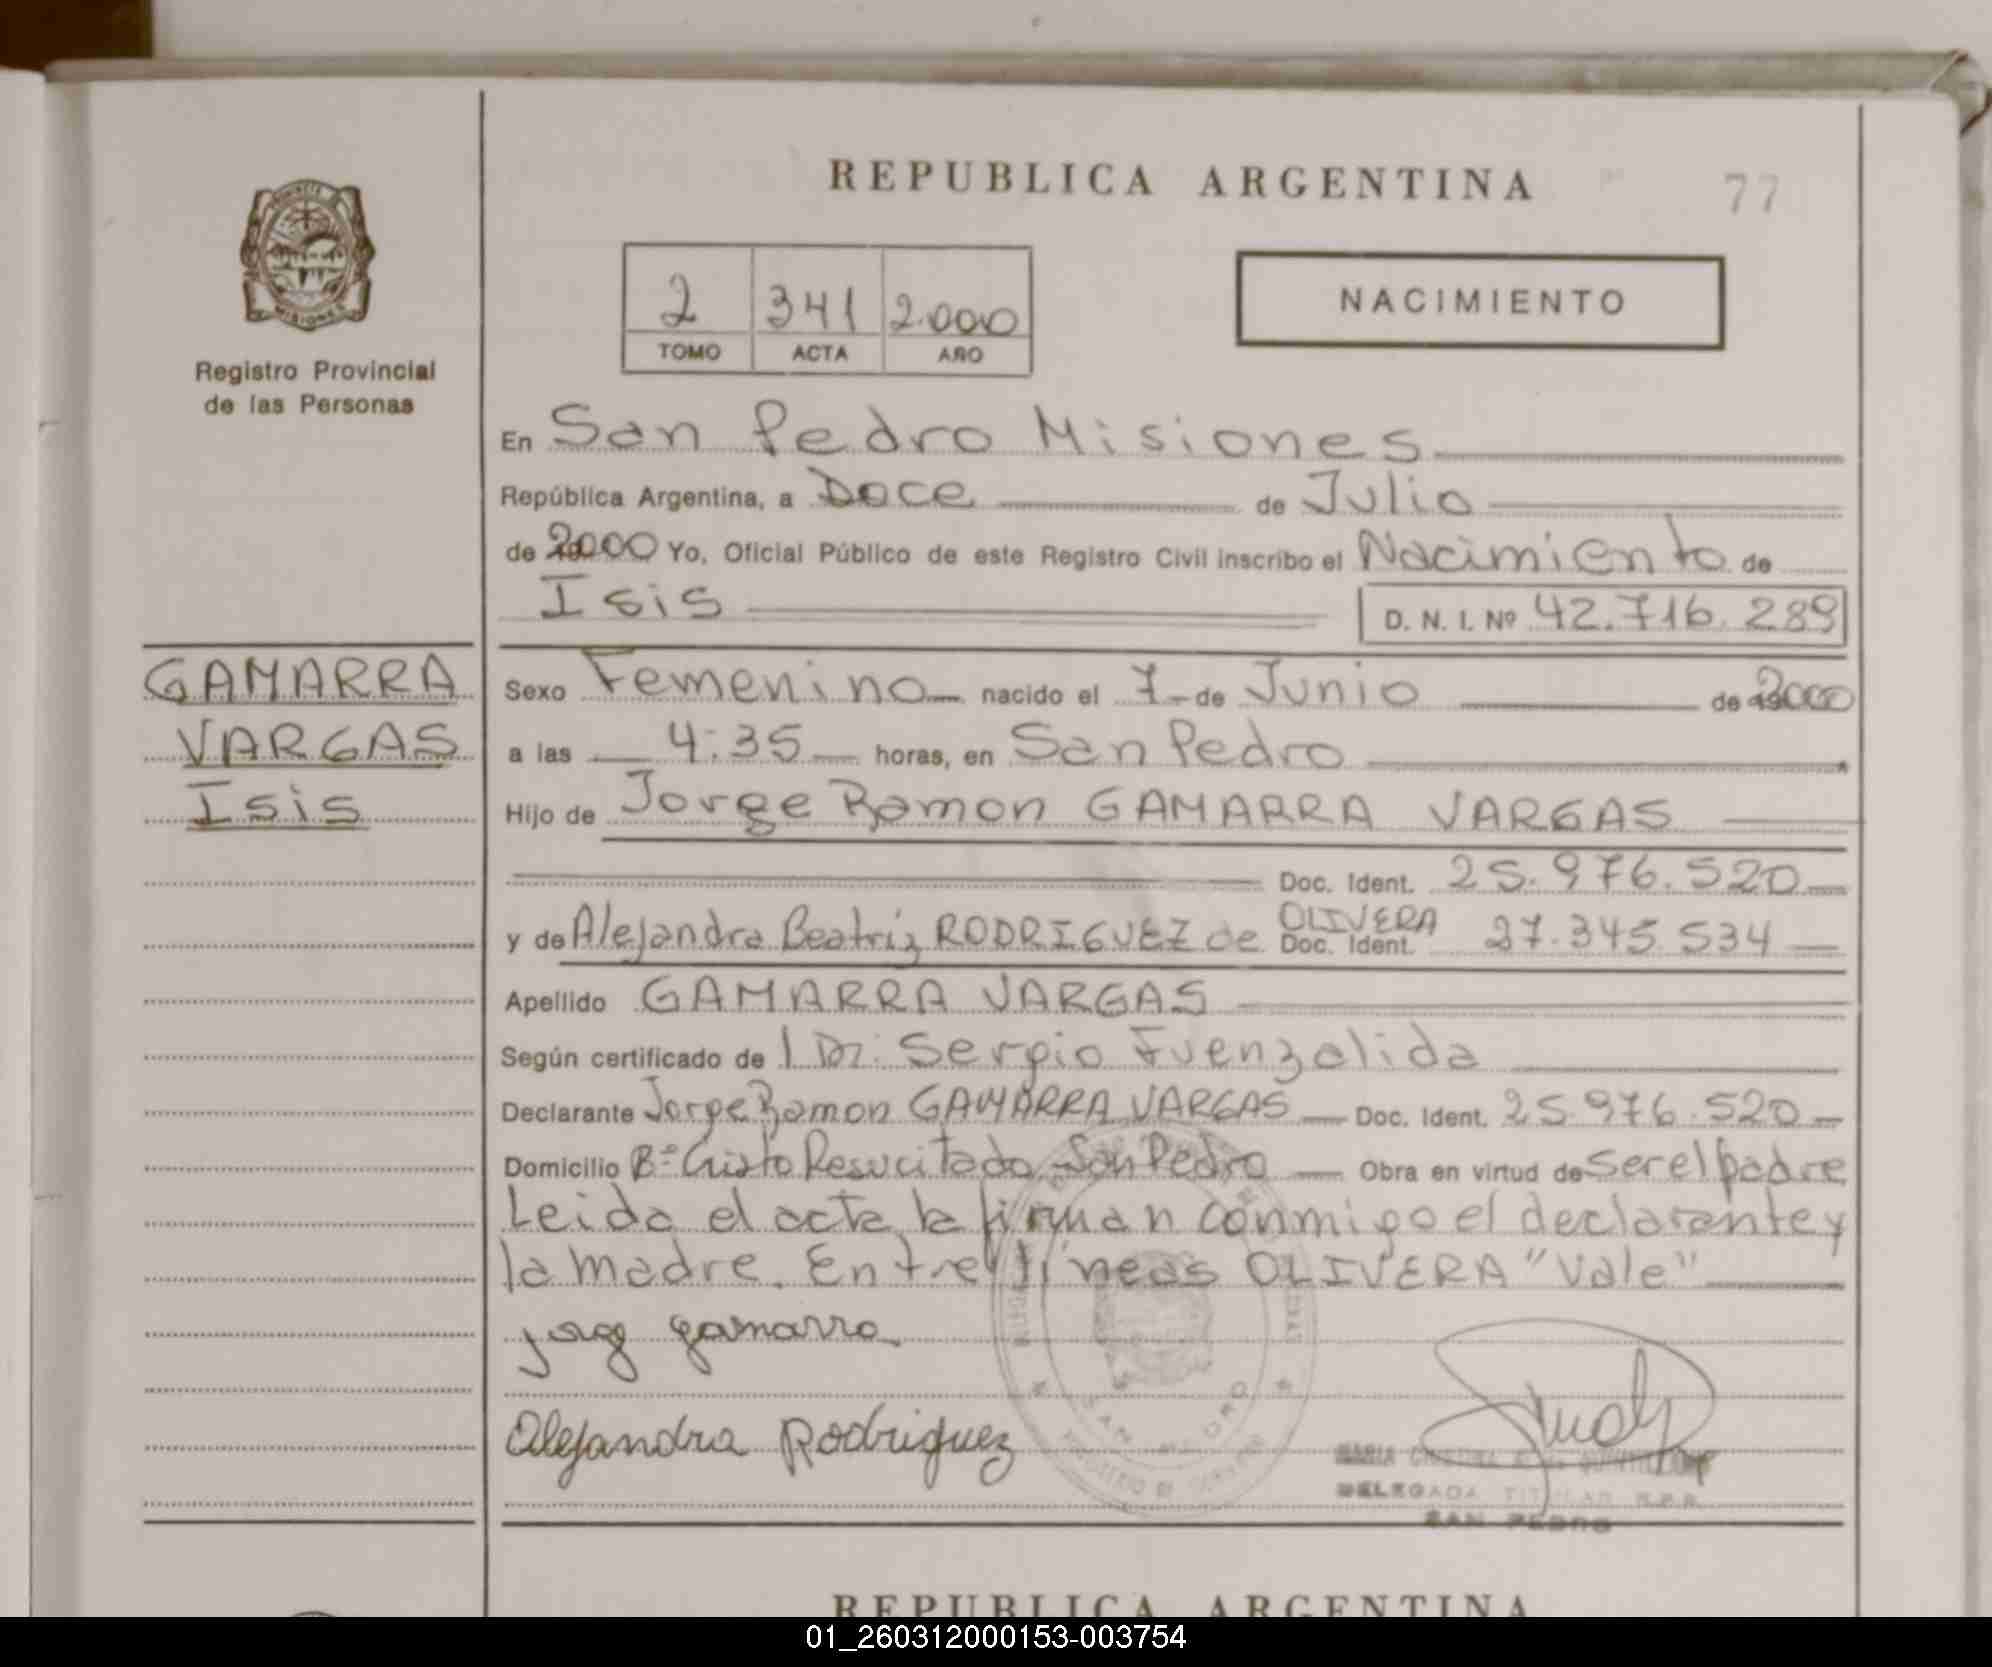 REPUBLICA ARGENTINA
77
PROVINCIA
MISIONES
Registro Provincial
de las Personas
2 341 2.000
TOMO ACTA AÑO
NACIMIENTO
En San Pedro Misiones
República Argentina, a Doce de Julio
de 2000 Yo, Oficial Público de este Registro Civil inscribo el Nacimiento de
Isis D. N. I. Nº 42.716.289
GAMARRA
VARGAS
Isis
Sexo Femenino nacido el 7 de Junio de 2000
a las 4:35 horas, en San Pedro
Hijo de Jorge Ramon GAMARRA VARGAS
Doc. Ident. 25.976.520
OLIVERA
y de Alejandra Beatriz RODRIGUEZ de Doc. Ident. 27.345.534
Apellido GAMARRA VARGAS
Según certificado de l Dr. Sergio Fuenzalida
Declarante Jorge Ramon GAMARRA VARGAS Doc. Ident. 25.976.520
Domicilio Bº Cristo Resucitado San Pedro Obra en virtud de ser el padre
Leida el acta la firman conmigo el declarante y
la madre. Entre líneas OLIVERA "Vale"
jorg gamarra
Alejandra Rodriguez
SAN PEDRO
MARIA CRISTINA
DELEGADA TITULAR R.P.P.
SAN PEDRO
REPUBLICA ARGENTINA
01_260312000153-003754